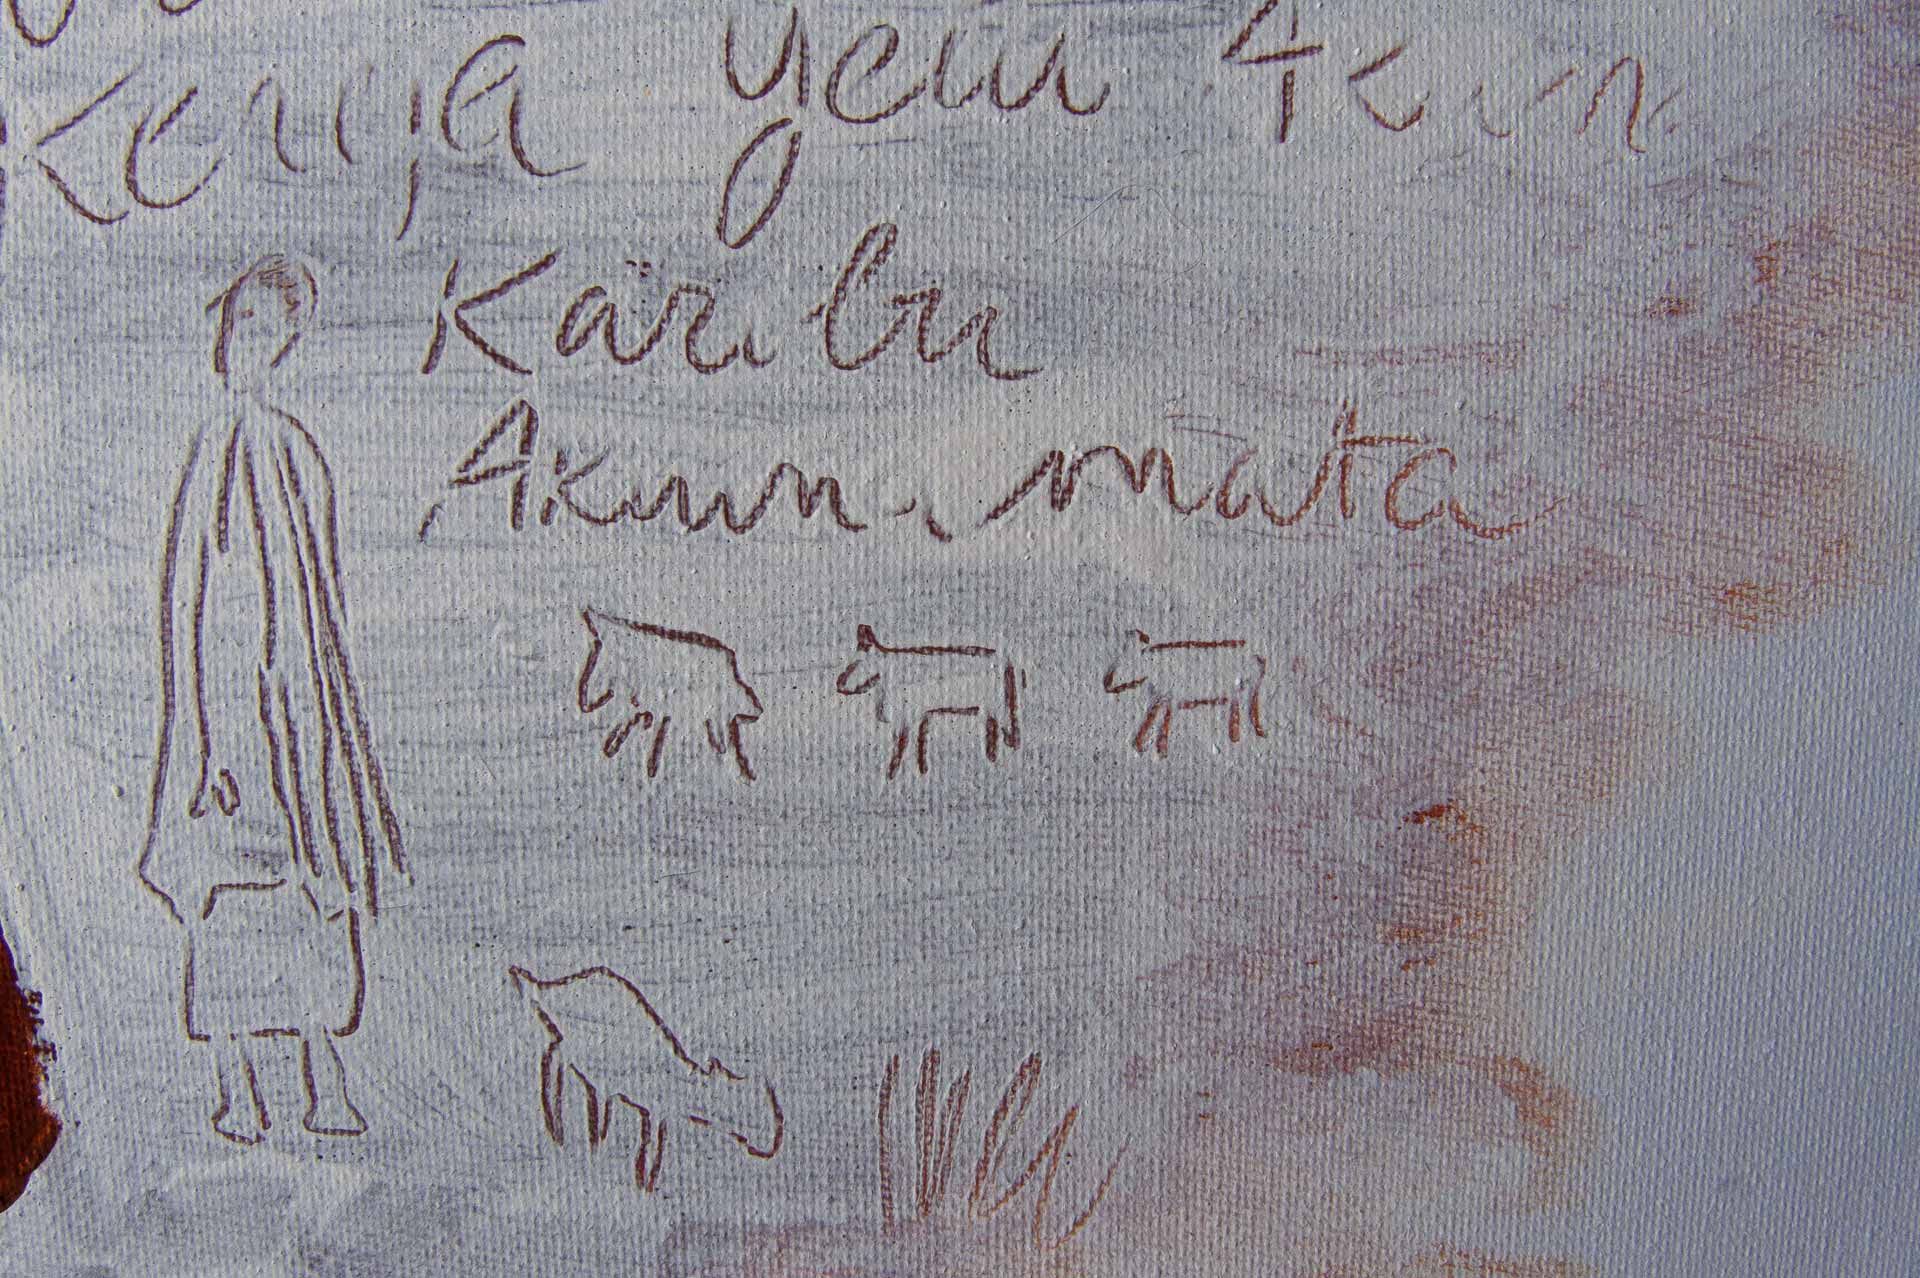 Kenja yetu Akun
Karibu
Akuna mata